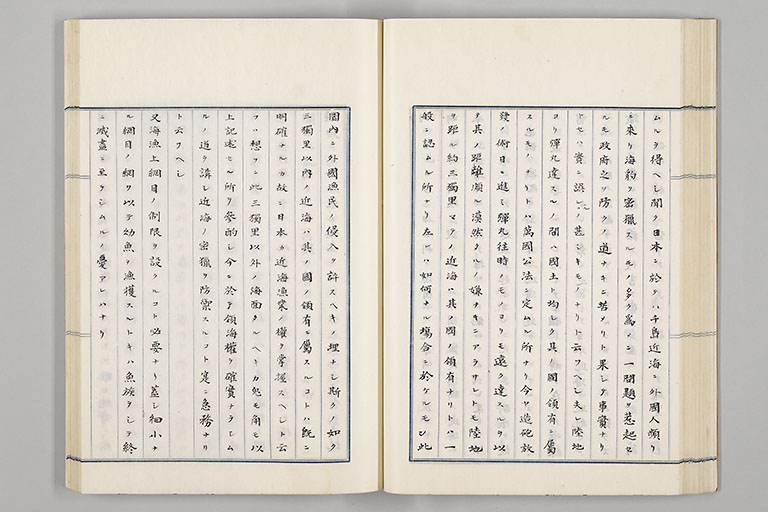 ムルヲ得ヘシ聞ク日本ニ於テハ千島近海ニ外國人頻リ
ニ来リ海豹ヲ密猟スルモノ多ク為メニ一問題ヲ惹起セ
ルモ政府之ヲ防クノ道ナキニ苦メリト果シテ事實ナリ
トセハ實ニ誤レルノ甚シキモノナリト云フヘシ夫レ陸地
ヨリ彈丸達スルノ間ハ國土ト均シク其ノ國ノ領有ニ屬
スルモノナリトハ萬國公法ニ定ムル所ナリ今ヤ造砲放
發ノ術日ニ進ミ彈丸往時ノモノヨリモ遠ク達スルヲ以
テ其ノ距離頗ル漠然タルノ嫌ナキニアラサレトモ陸地
ヲ距ル約三獨里マテノ近海ハ其ノ國ノ領有ナリトハ一
般ニ認ムル所ナリ左レハ如何ナル塲合ニ於ケルモ此
圏内ニ外國漁民ノ侵入ヲ許スヘキノ理ナシ斯クノ如ク
三獨里以内ノ近海ハ其ノ國ノ領有ニ屬スルコト既ニ
明確ナルカ故ニ日本カ近海漁業ノ權ヲ掌握スヘシト云
フハ想フニ此三獨里以外ノ海面タルヘキカ兎モ角モ以
上記述セル所ヲ参酌シ今ニ於テ領海權ヲ確實ナラシム
ルノ道ヲ講シ近海ノ密猟ヲ防禦スルコト寔ニ急務ナリ
ト云フヘシ
又海漁上網目ノ制限ヲ設クルコト必要ナリ蓋シ細小ナ
ル網目ノ網ヲ以テ幼魚ヲ漁獲スルトキハ魚族ヲシテ終
ニ滅盡ニ至ラシムルノ憂アレハナリ